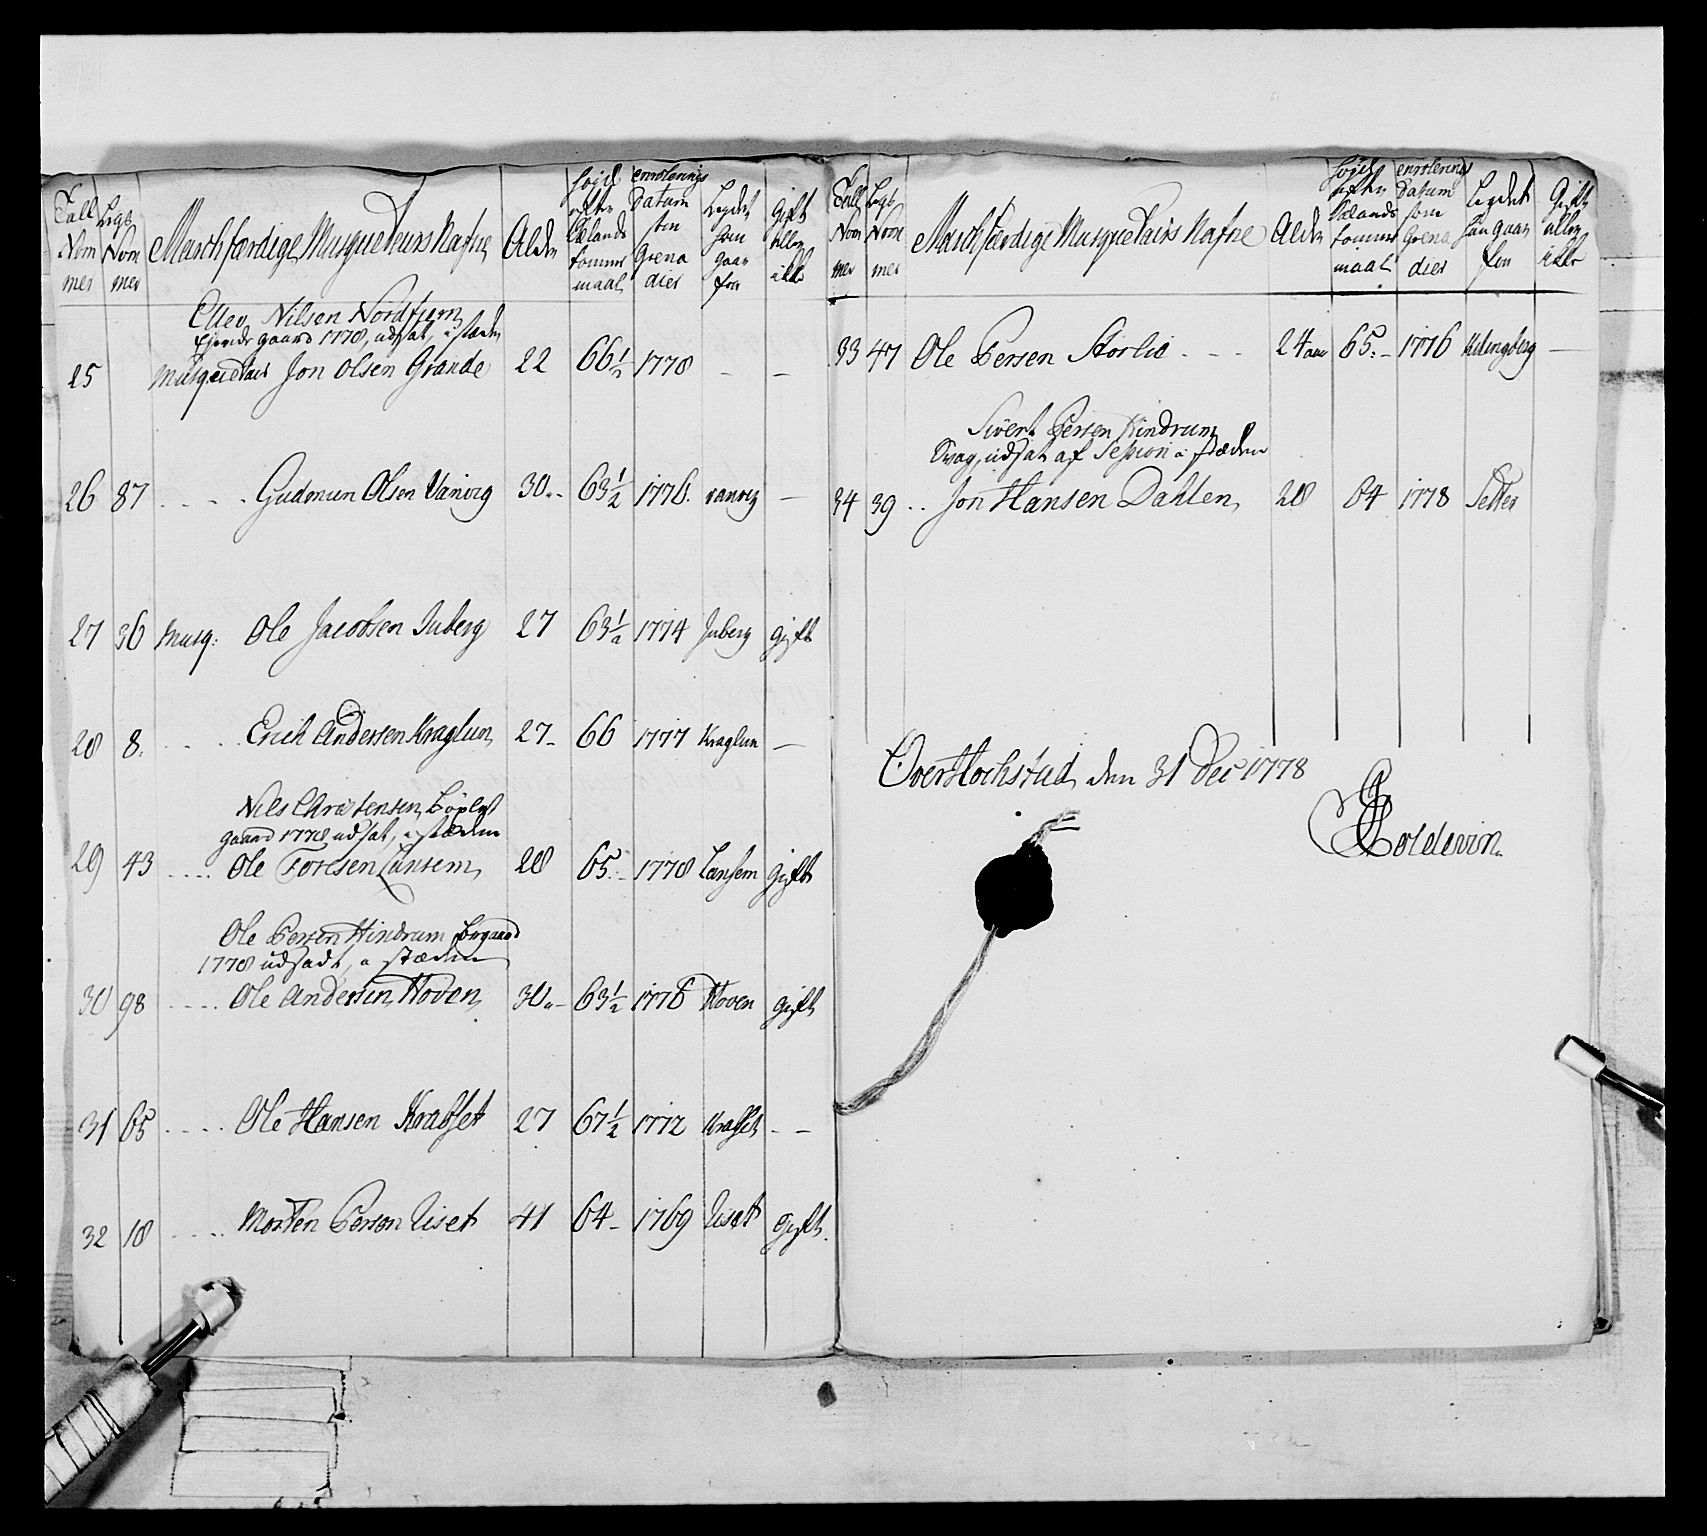 Tall Nommer | Legs Nommer | Marchfærdige Musqueteurs Nafne | Alder | højde efter Sælands tommemaal | enrolerings Datum som Grenadier | Legdet som gaar for | Gift eller ikke
Ellev Nilsen Nordtum
Ejende gaard 1778, udsat, i stæden
25 Musqueteur Jon Olsen Grande 22 66½ 1778 - -
26 87 .... Gudmun Olsen Vanvig 30 63½ 1776. vanvig -
27 36 Musq: Ole Jacobsen Juberg 27 63½ 1774 Juberg gift
28 8. ... Erich Andersen Kraglun 27 66 1777 Kraglun -
Nils Christensen
gaard 1778 udsat, i stæden
29 43 .... Ole Toresen Lansem 28 65. 1778 Lansem gift
Ole Persen Hindrum
1778 udsadt, i stæden
30 98 .... Ole Andersen Hoven 30 63½ 1776 Hoven gift
31 65 .... Ole Hansen Krabset 27 67½ 1772 Krabset - -
32 18 .... Morten Person Uset 41 64 1769 Uset gift.
Tall Nommer | Legs Nommer | Marchfærdige Musqueteurs Nafne | Alder | højde efter Sælands tommer maal | enrolerings Datum som Grenadier | Legdet han gaar for | Gift eller ikke
33 47 Ole Persen Storlie - - - 24 aar 65. 1776 -
Sivert Persen Hindrum
Svag, udsat af Session i stæden
34 39 .. Jon Hansen Dahlen 28 64 1778 Setter
OverHochstad den 31 Dec 1778
Coldevin.